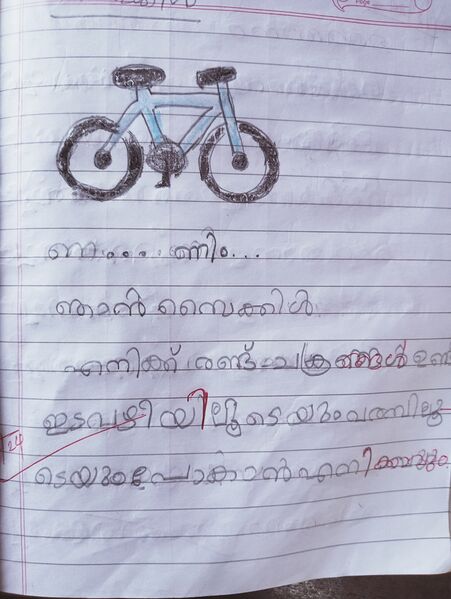 ണ.......ണിം...
ഞാൻ സൈക്കിൾ
എനിക്ക് രണ്ട് ചക്രങ്ങൾ ഉണ്ട്
ഇടവഴിയിലൂടെയും വരമ്പിലൂ
ടെയും പോകാൻ എനിക്കാവും